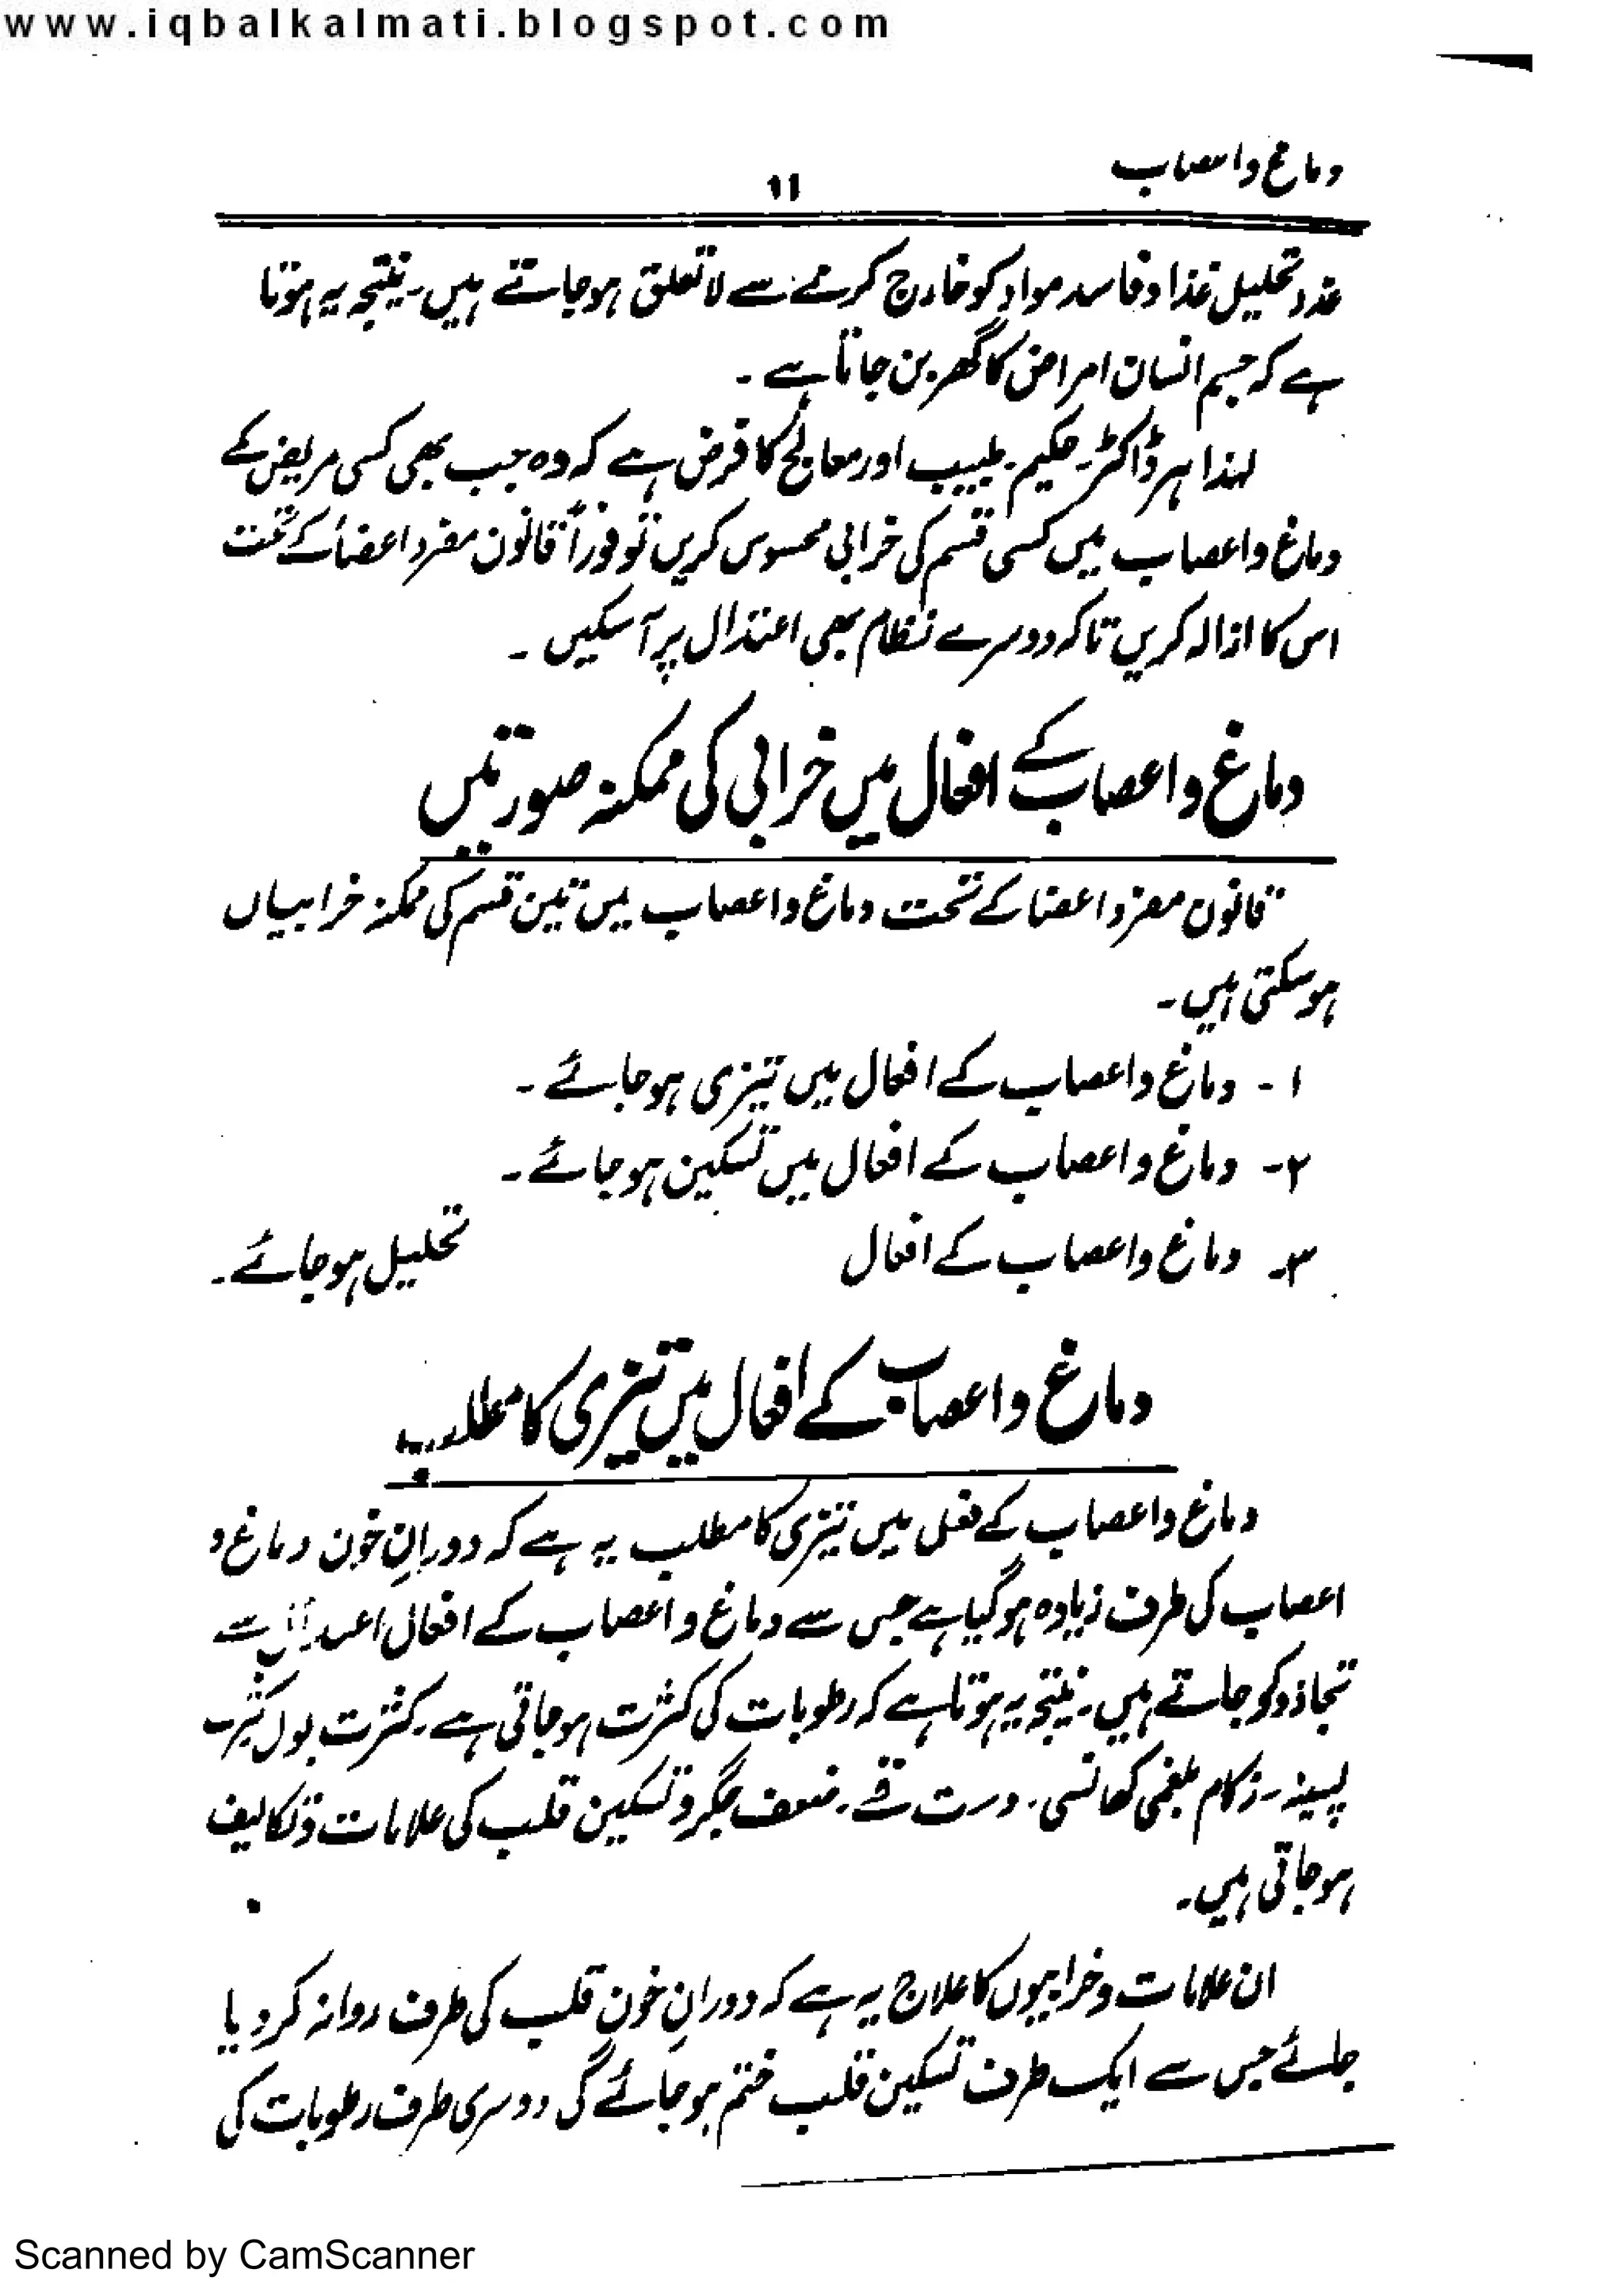 www.iqbalkalmati.blogspot.com
دماغ و اعصاب
11
غدد تحلیل غذا و فاسد مواد کو خارج کرنے سے لا تعلق ہو جاتے ہیں۔ نیتجہ یہ ہوتا
ہے کہ جسم انسان امراض کا گھر بن جاتا ہے ۔
لہذا ہر ڈاکٹر۔ حکیم۔ طبیب اور معالج کا فرض ہے کہ وہ جب بھی کسی مریض کے
دماغ و اعصاب میں کسی قسم کی خرابی محسوس کریں تو فوراً قانون مفرد اعضأ کے تحت
اس کا ازالہ کریں تاکہ دوسرے نظام بھی اعتدال پر آسکیں ۔
دماغ و اعصاب کے افعال میں خرابی کی ممکنہ صورتیں
قانون مفرد اعضا کے تحت دماغ و اعصاب میں تین قسم کی ممکنہ خرابیاں
ہو سکتی ہیں ۔
۱ - دماغ و اعصاب کے افعال میں تیزی ہو جائے ۔
۲- دماغ و اعصاب کے افعال میں تسکین ہو جائے ۔
۳- دماغ و اعصاب کے افعال تحلیل ہو جائے ۔
دماغ و اعصاب کے افعال میں تیزی کا مطلب
دماغ و اعصاب کے فعل میں تیزی کا مطلب یہ ہے کہ دورانِ خون دماغ و
اعصاب کی طرف زیادہ ہو گیا ہے جس سے دماغ و اعصاب کے افعال سے
تجاذو کو جاتے ہیں۔ نیتجہ یہ ہوتا ہے کہ رطوبات کی کثرت ہو جاتی ہے۔ کثرت بول
پسینہ۔ زکام بلغمی کھانسی۔ دست قے۔ ضعف جگر و تسکین قلب کی علامات و تکالیف
ہو جاتی ہیں۔
ان علامات و خرابیوں کا علاج یہ ہے کہ دورانِ خون قلب کی طرف روانہ کر دیا
جائے جس سے ایک طرف تسکین قلب ختم ہو جائے گی دوسری طرف رطوبات کی
Scanned by CamScanner